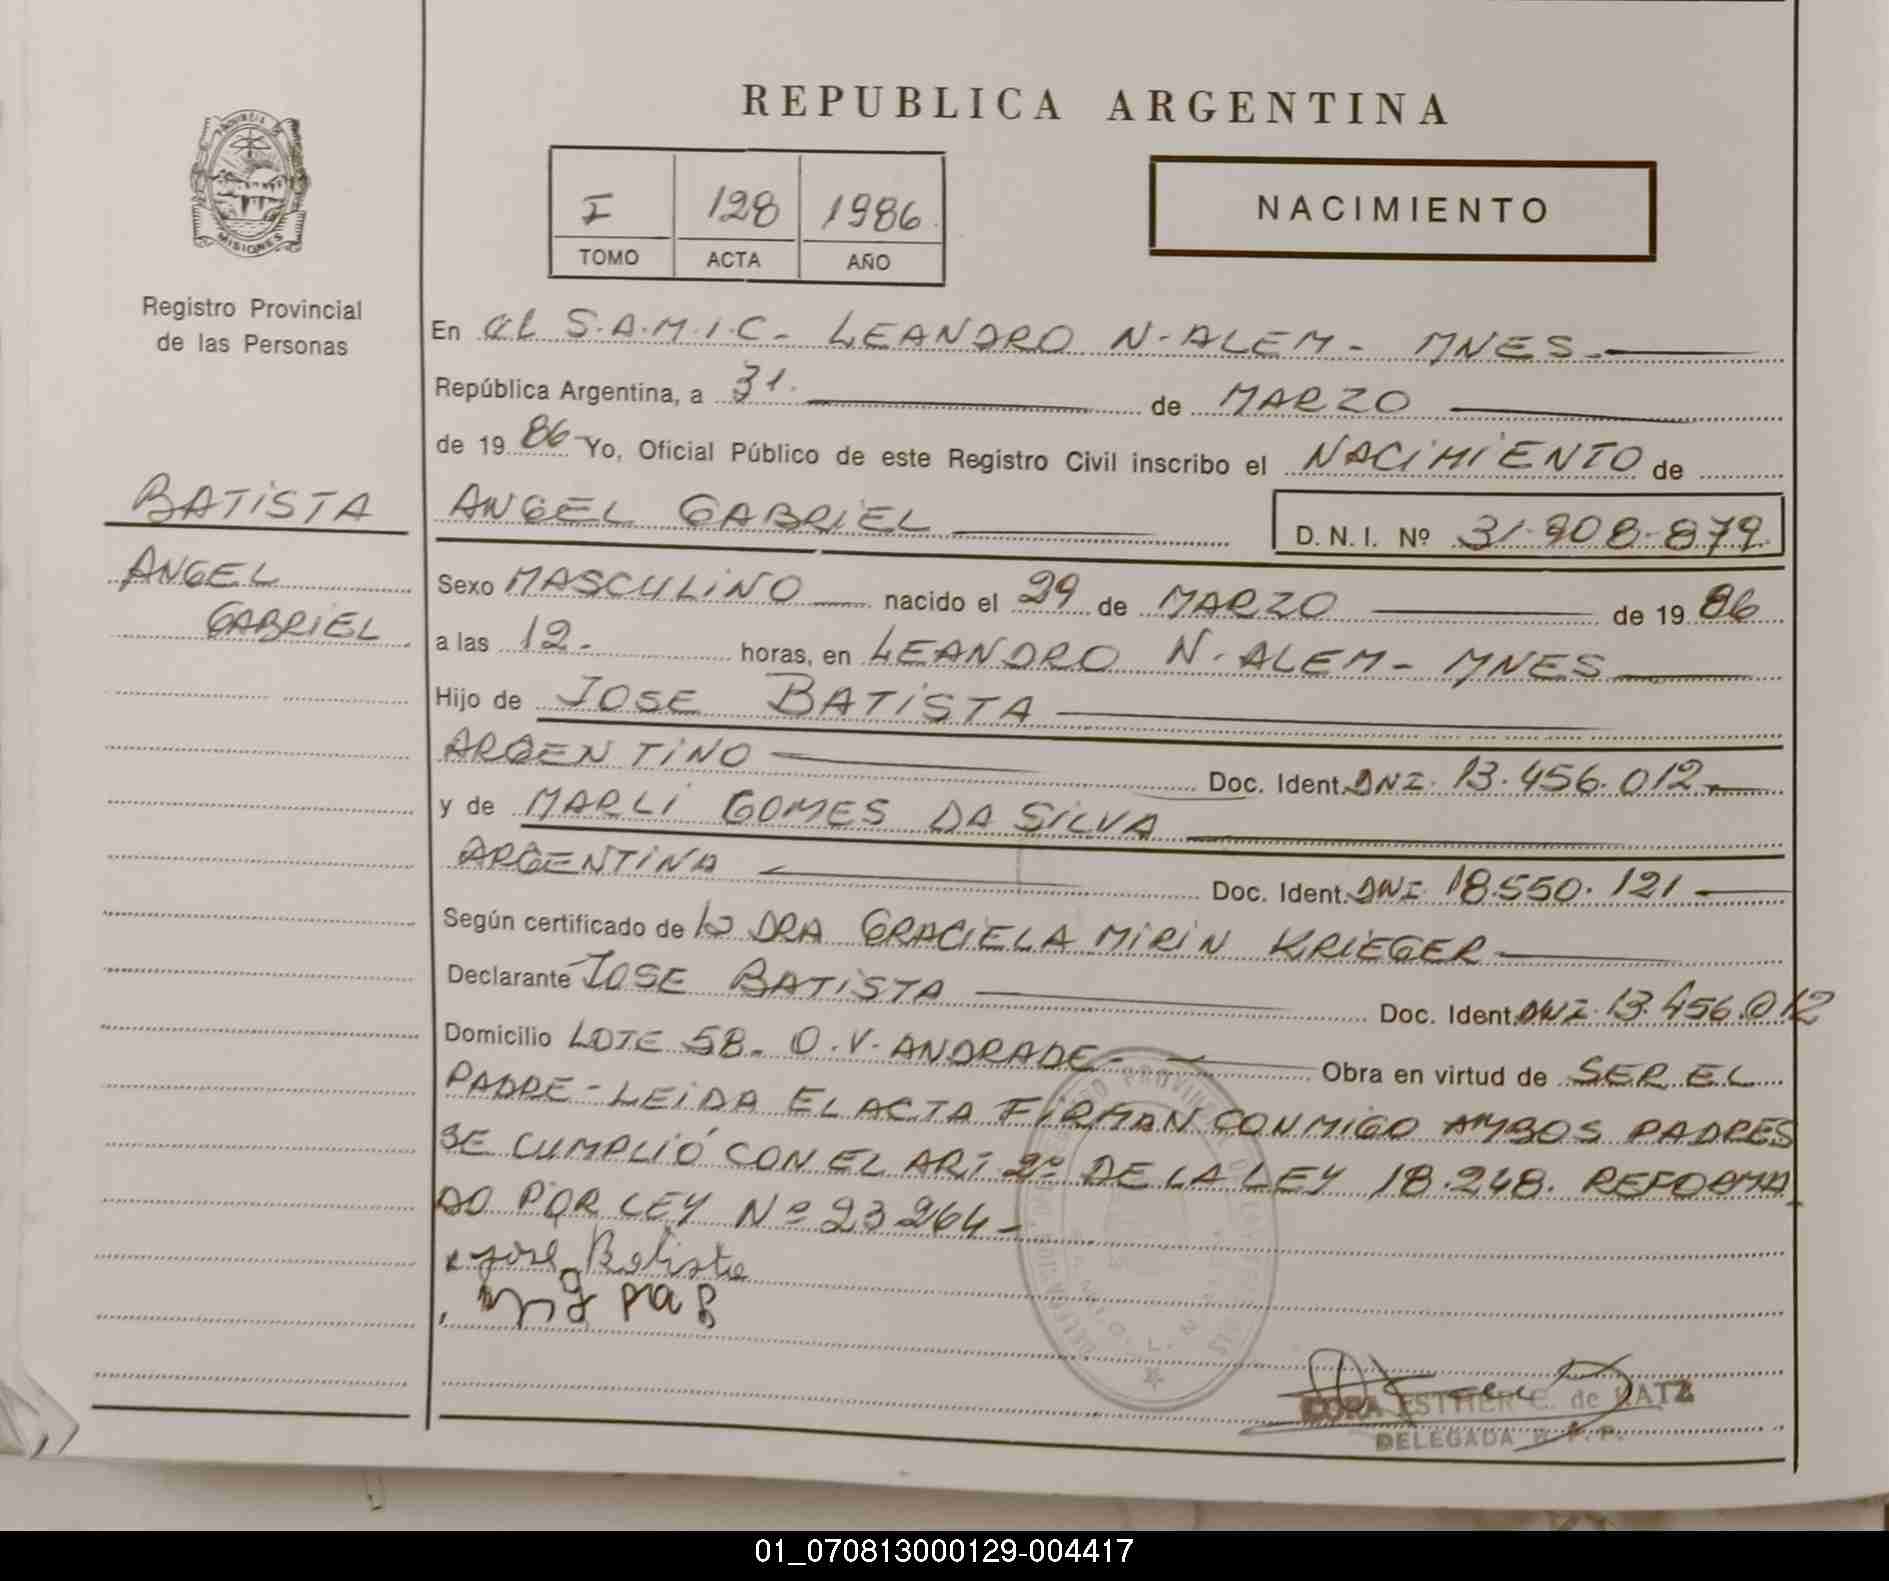 REPUBLICA ARGENTINA
PROVINCIA DE
MISIONES
Registro Provincial
de las Personas
I 128 1986
TOMO ACTA AÑO
NACIMIENTO
En el S.A.M.I.C- LEANDRO N-ALEM- MNES-
República Argentina, a 31. de MARZO
de 1986 Yo, Oficial Público de este Registro Civil inscribo el NACIMIENTO de
BATISTA
ANGEL
GABRIEL
ANGEL GABRIEL D. N. I. Nº 31.908.879
Sexo MASCULINO nacido el 29 de MARZO de 1986
a las 12- horas, en LEANDRO N-ALEM- MNES
Hijo de JOSE BATISTA
ARGENTINO Doc. Ident. DNI. 13.456.012-
y de MARLI GOMES DA SILVA
ARGENTINA Doc. Ident. DNI. 18.550.121-
Según certificado de la DRA GRACIELA MIRIN KRIEGER
Declarante JOSE BATISTA Doc. Ident. DNI. 13.456.012
Domicilio LOTE 58- O.V. ANDRADE- Obra en virtud de SER EL
PADRE-LEIDA EL ACTA FIRMAN CONMIGO AMBOS PADRES
SE CUMPLIÓ CON EL ART 2º DE LA LEY 18.248. REFORMA
DO POR LEY Nº 23264-
Jose Batista
ESTHER C. de KATZ
DELEGADA R. P. P.
01_070813000129-004417